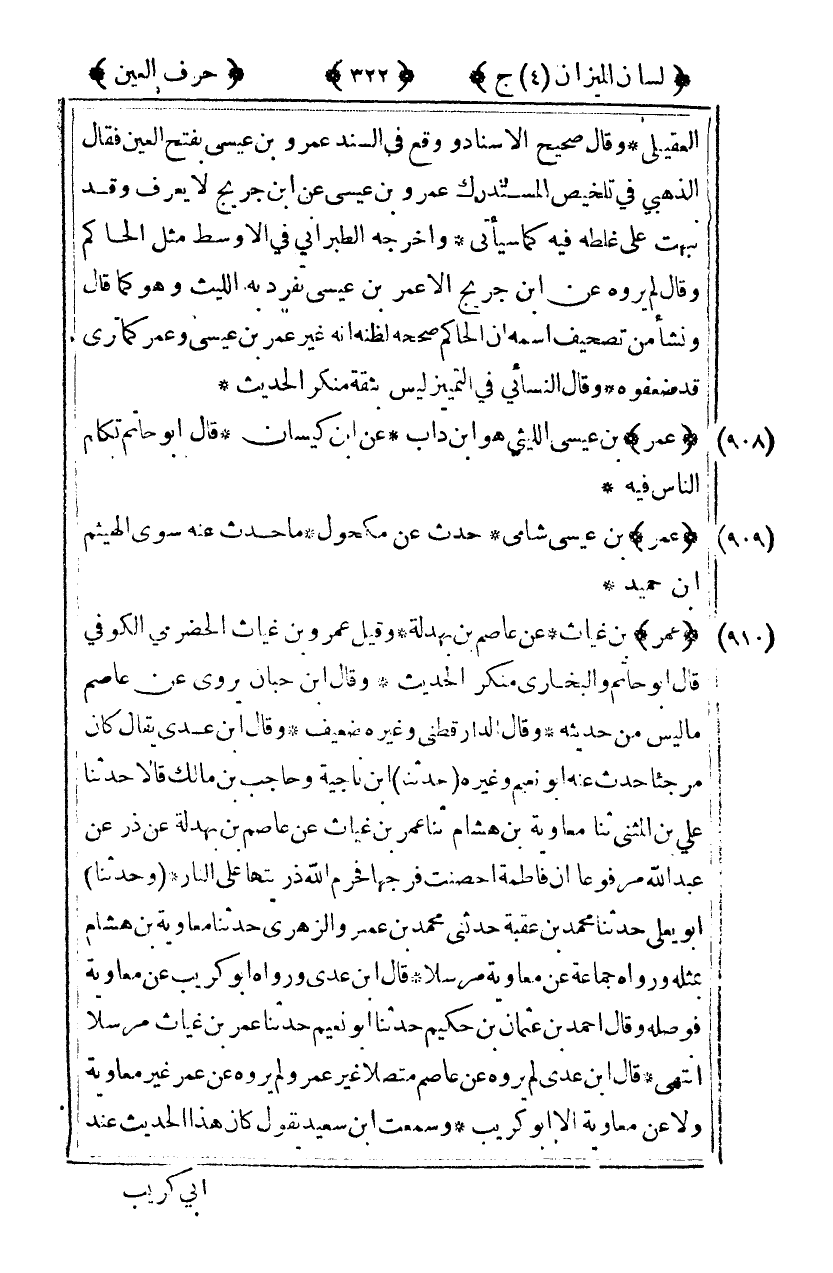 ﴿ لسان الميزان (٤) ج ﴾ ﴿ ٣٢٢ ﴾ ﴿ حرف العين ﴾
العقيلى * وقال صحيح الاسناد و وقع في السند عمرو بن عيسى بفتح العين فقال
الذهبي في تلخيص المستدرك عمرو بن عيسى عن ابن جريج لا يعرف وقد
نبهت على غلطه فيه كما سيأتى * واخرجه الطبراني في الاوسط مثل الحاكم
وقال لم يروه عن ابن جريج الا عمر بن عيسى تفرد به الليث وهو كما قال
ونشأ من تصحيف اسمه ان الحاكم صححه لظنه انه غير عمر بن عيسى وعمر كما ترى
قد ضعفوه * وقال النسائي في التمييز ليس بثقة منكر الحديث *
(٩٠٨) ﴿ عمر ﴾ بن عيسى الليثي هو ابن داب * عن ابن كيسان * قال ابو حاتم تكلم
الناس فيه *
(٩٠٩) ﴿ عمر ﴾ بن عيسى شامى * حدث عن مكحول * ما حدث عنه سوى الهيثم
ابن حميد *
(٩١٠) ﴿ عمر ﴾ بن غياث * عن عاصم بن بهدلة * وقيل عمرو بن غياث الحضرمي الكوفي
قال ابو حاتم والبخارى منكر الحديث * وقال ابن حبان يروى عن عاصم
ماليس من حديثه * وقال الدار قطنى وغيره ضعيف * وقال ابن عدى يقال كان
مرجئا حدث عنه ابو نعيم وغيره (حدثنا) ابن ناجية وحاجب بن مالك قالا حدثنا
علي بن المثنى ثنا معاوية بن هشام ثنا عمر بن غياث عن عاصم بن بهدلة عن ذر عن
عبد الله مرفوعا ان فاطمة احصنت فرجها فحرم الله ذريتها على النار * (وحدثنا)
ابو يعلى حدثنا محمد بن عقبة حدثنى محمد بن عمرو الزهرى حدثنا معاوية بن هشام
بمثله ورواه جماعة عن معاوية مرسلا * قال ابن عدى ورواه ابو كريب عن معاوية
فوصله وقال احمد بن عثمان بن حكيم حدثنا ابو نعيم حدثنا عمر بن غياث مرسلا
انتهى * قال ابن عدى لم يروه عن عاصم متصلا غير عمر ولم يروه عن عمر غير معاوية
ولا عن معاوية الا ابو كريب * وسمعت ابن سعيد يقول كان هذا الحديث عند
ابي كريب